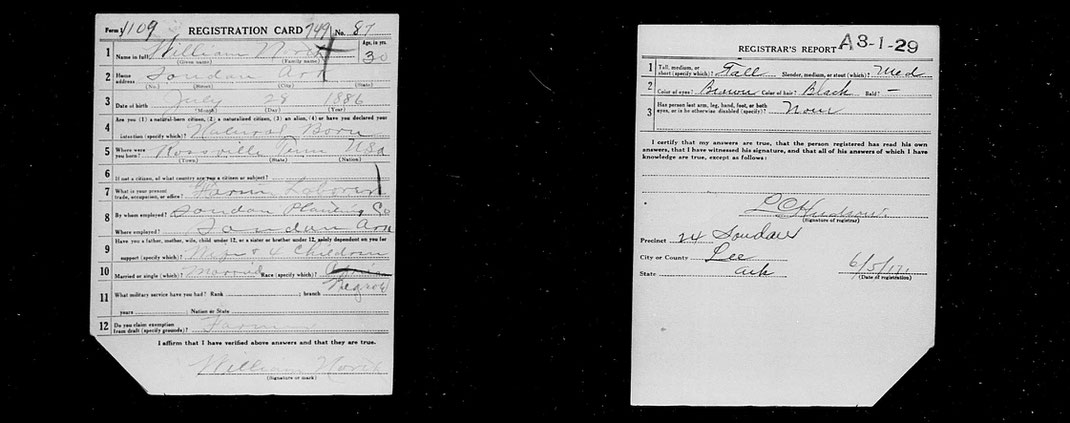 Form 1 1109 REGISTRATION CARD 749 No. 87
1 Name in full William North Age, in yrs. 30
(Given name) (Family name)
2 Home address Soudan Ark
(No.) (Street) (City) (State)
3 Date of birth July 28 1886
(Month) (Day) (Year)
4 Are you (1) a natural-born citizen, (2) a naturalized citizen, (3) an alien, (4) or have you declared your
intention (specify which)? Natural Born
5 Where were you born? Rossville Tenn USa
(Town) (State) (Nation)
6 If not a citizen, of what country are you a citizen or subject?
7 What is your present trade, occupation, or office? Farm Laborer
8 By whom employed? Soudan Planting Co
Where employed? Soudan Ark
9 Have you a father, mother, wife, child under 12, or a sister or brother under 12, solely dependent on you for
support (specify which)? Wife & 4 Children
10 Married or single (which)? Married Race (specify which)?
Negro
11 What military service have you had? Rank ; branch
years ; Nation or State
12 Do you claim exemption from draft (specify grounds)?
I affirm that I have verified above answers and that they are true.
William North
(Signature or mark)
REGISTRAR'S REPORT A3-1-29
1 Tall, medium, or short (specify which)? Tall Slender, medium, or stout (which)? Med
2 Color of eyes? Brown Color of hair? Black Bald? –
3 Has person lost arm, leg, hand, foot, or both
eyes, or is he otherwise disabled (specify)? None
I certify that my answers are true, that the person registered has read his own
answers, that I have witnessed his signature, and that all of his answers of which I
have knowledge are true, except as follows:
L C Hudson
(Signature of registrar)
Precinct 24 Soudan
City or County Lee
State Ark 6/5/17
(Date of registration)